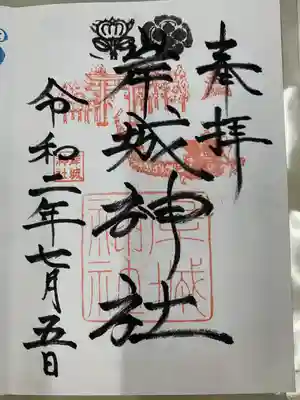 奉拝
岸城神社
令和二年七月五日
岸城
神社